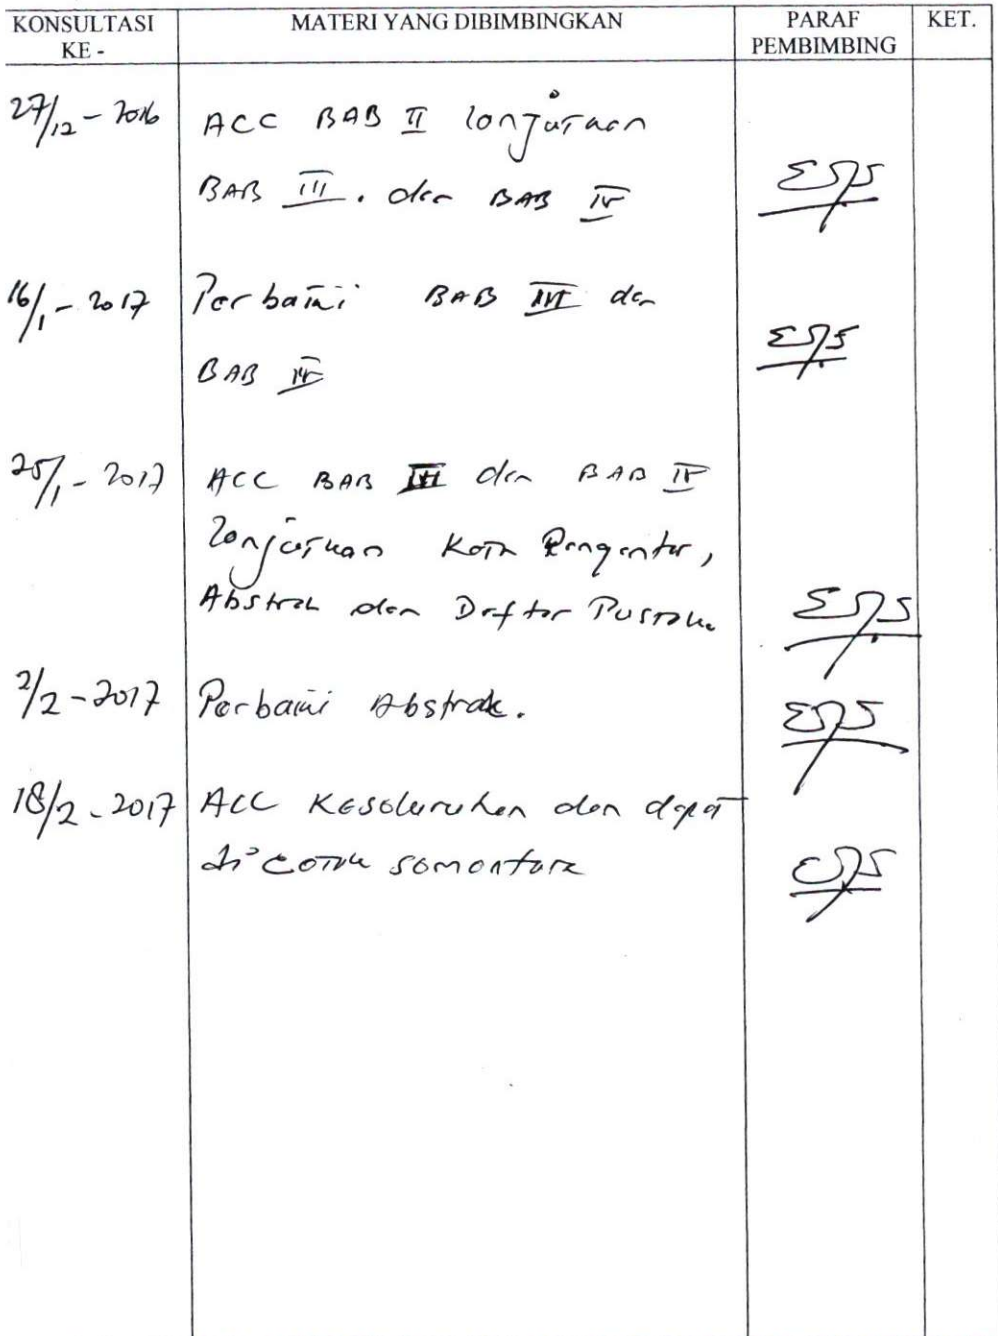 KONSULTASI KE - MATERI YANG DIBIMBINGKAN PARAF PEMBIMBING KET.
27/12 - 2016 ACC BAB II lanjutkan
BAB III. dan BAB IV
16/1 - 2017 Perbaiki BAB III dan
BAB IV
25/1 - 2017 ACC BAB III dan BAB IV
lanjutkan Kata Pengantar,
Abstrak dan Daftar Pustaka
2/2 - 2017 Perbaiki Abstrak.
18/2 - 2017 ACC Keseluruhan dan dapat
di cetak sementara